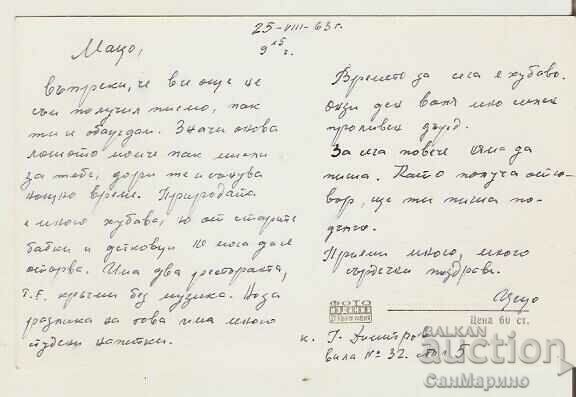 25-VIII-63 г.
9 15 г.
Мацо,
Въпреки, че все още не
съм получил писмо, пак
ти се обаждам. Значи онова
лошото момче пак мисли
за тебе, дори те и сънува
нощно време. Природата
е много хубава, но от старите
бабки и дядковци не мога да се
отърва. Има два ресторанта,
т.е. кръчми без музика. Но за
разлика на това има много
студени напитки.
Времето за сега е хубаво.
Онзи ден валя много силен
проливен дъжд.
За сега повече няма да
пиша. Като получа отго-
вор, ще ти пиша по-
дълго.
Приеми много, много
сърдечни поздрави.
Цецо
ФОТО
Цена 60 ст.
к. Г. Димитров
вила № 32. 5
BALKAN
auction
СанМарино